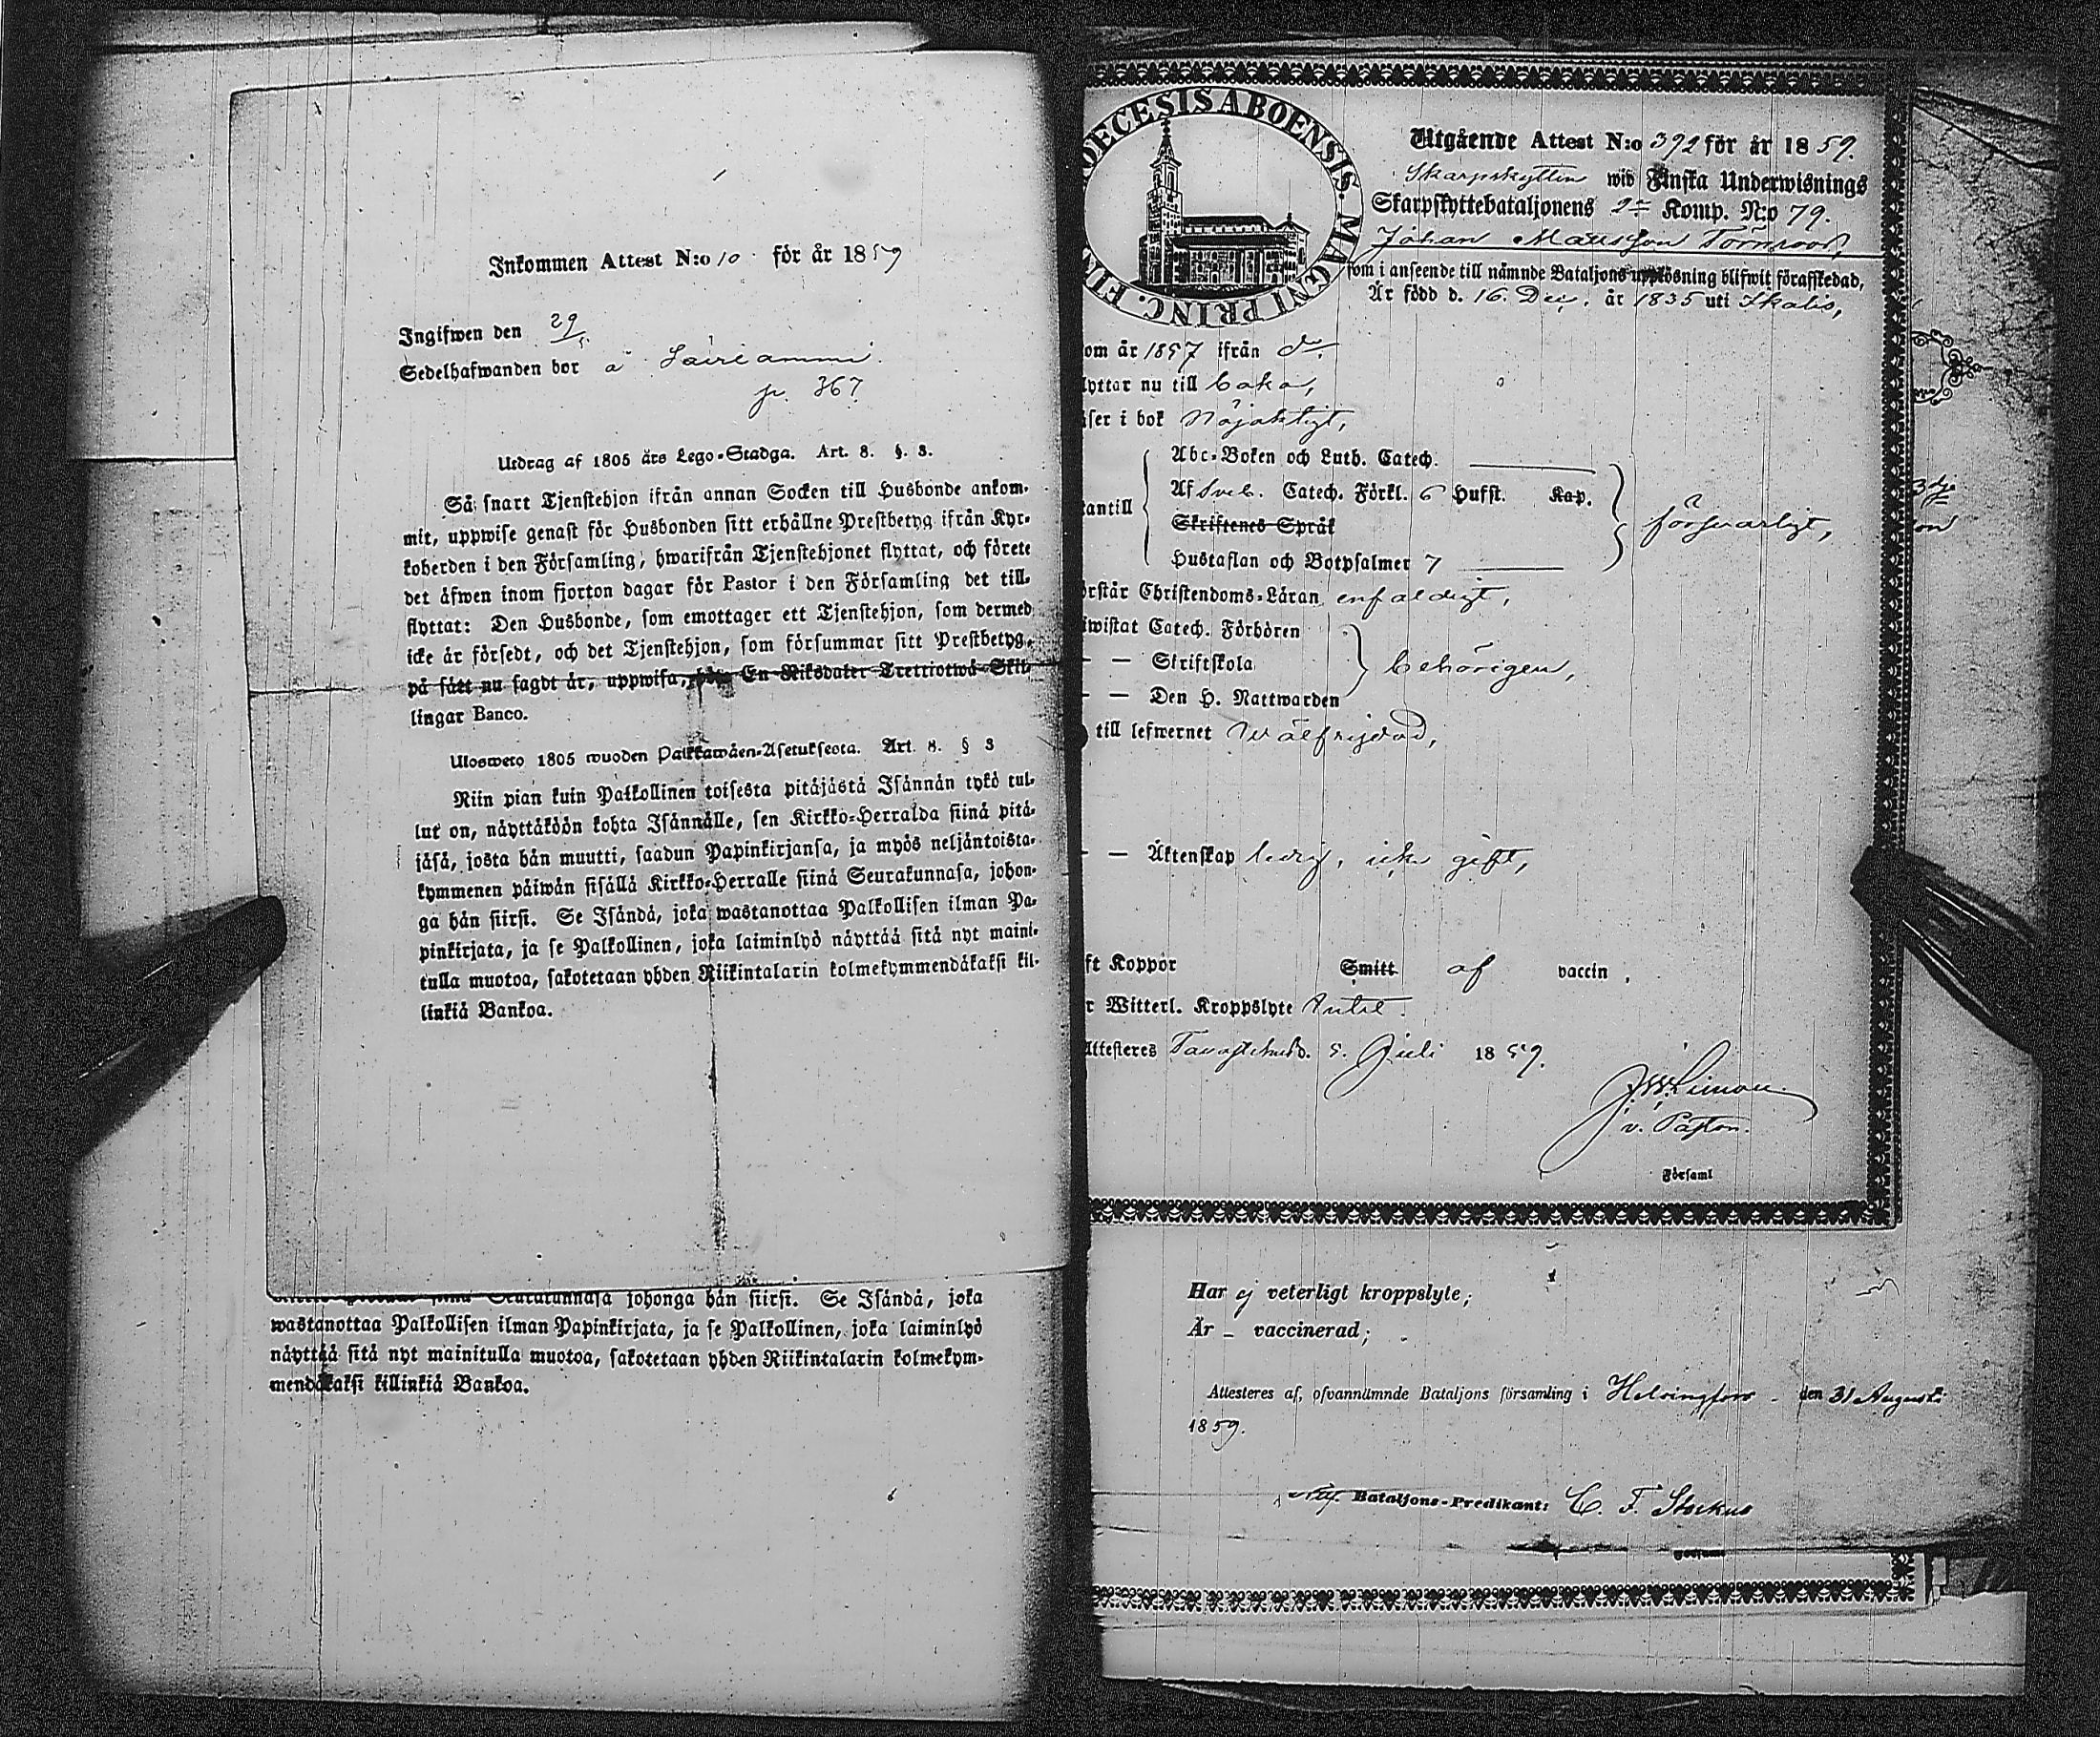 Inkommen Attest N:o 10 för år 1859
Ingifwen den 29
Sedelhafwanden bor å
p. 367
Utdrag af 1805 års Lego-Stadga. Art. 8. §. 3.
Så snart Tjenstehjon ifrån annan Socken till Husbonde ankom-
mit, uppwise genast för Husbonden sitt erhållne Prestbetyg ifrån Kyr-
koherden i den Församling, hwarifrån Tjenstehjonet flyttat, och förete
det äfwen inom fjorton dagar för Pastor i den Församling det till-
flyttat: Den Husbonde, som emottager ett Tjenstehjon, som dermed
icke är försedt, och det Tjenstehjon, som försummar sitt Prestbetyg,
på sätt nu sagdt är, uppwisa, En Riksdaler Trettiotwå Skil-
lingar Banco.
Ulosweto 1805 wuoden Palkkawäen-Asetuksesta. Art. 8. § 3
Niin pian kuin Palkollinen toisesta pitäjästä Isännän tykö tul-
lut on, näyttäköön kohta Isännälle, sen Kirkko-Herralda siinä pitä-
jäsä, josta hän muutti, saadun Papinkirjansa, ja myös neljäntoista-
kymmenen päiwän sisällä Kirkko-Herralle siinä Seurakunnasa, johon-
ga hän siirsi. Se Isändä, joka wastanottaa Palkollisen ilman Pa-
pinkirjata, ja se Palkollinen, joka laiminlyö näyttää sitä nyt maini-
tulla muotoa, sakotetaan yhden Riikintalarin kolmekymmendäkaksi kil-
linkiä Bankoa.
Seurakunnasa johonga hän siirsi. Se Isändä, joka
wastanottaa Palkollisen ilman Papinkirjata, ja se Palkollinen, joka laiminlyö
näyttää sitä nyt mainitulla muotoa, sakotetaan yhden Riikintalarin kolmekym-
mendäkaksi killinkiä Bankoa.
OECESIS ABOENSIS. MAGNI PRINC. FI
Utgående Attest N:o 392 för år 1859.
Skarpskytten wid Finska Underwisnings
Skarpskyttebataljonens 2:a Komp. N:o 79.
Johan Mattsson Törnroos,
som i anseende till nämnde Bataljons upplösning blifwit förafskedad,
Är född d. 16. Dec. år 1835 uti Ikalis,
om år 1857 ifrån d:o
lyttar nu till baka,
äser i bok Nöjaktigt,
Abc-Boken och Luth. Catech.
Af Sveb. Catech. Förkl. 6 Hufst. Kap.
antill
Skriftenes Språk
försvarligt,
Hustaflan och Botpsalmer 7
örstår Christendoms-Läran enfaldigt,
iwistat Catech. Förhören
— — Skriftskola
behörigen,
— — Den H. Nattwarden
till lefwernet wälfrejdad,
— — Äktenskap ledig, icke gift,
ft Koppor Smitt af vaccin,
r Witterl. Kroppslyte Intet.
Attesteres Tavastehus d. 5. Juli 1859.
v. Pastor.
Församl
3:dje
Har ej veterligt kroppslyte;
Är – vaccinerad;
Attesteres af, ofvannämnde Bataljons församling i Helsingfors den 31 Augusti
1859.
Bataljons-Predikant: C. F. Storkus